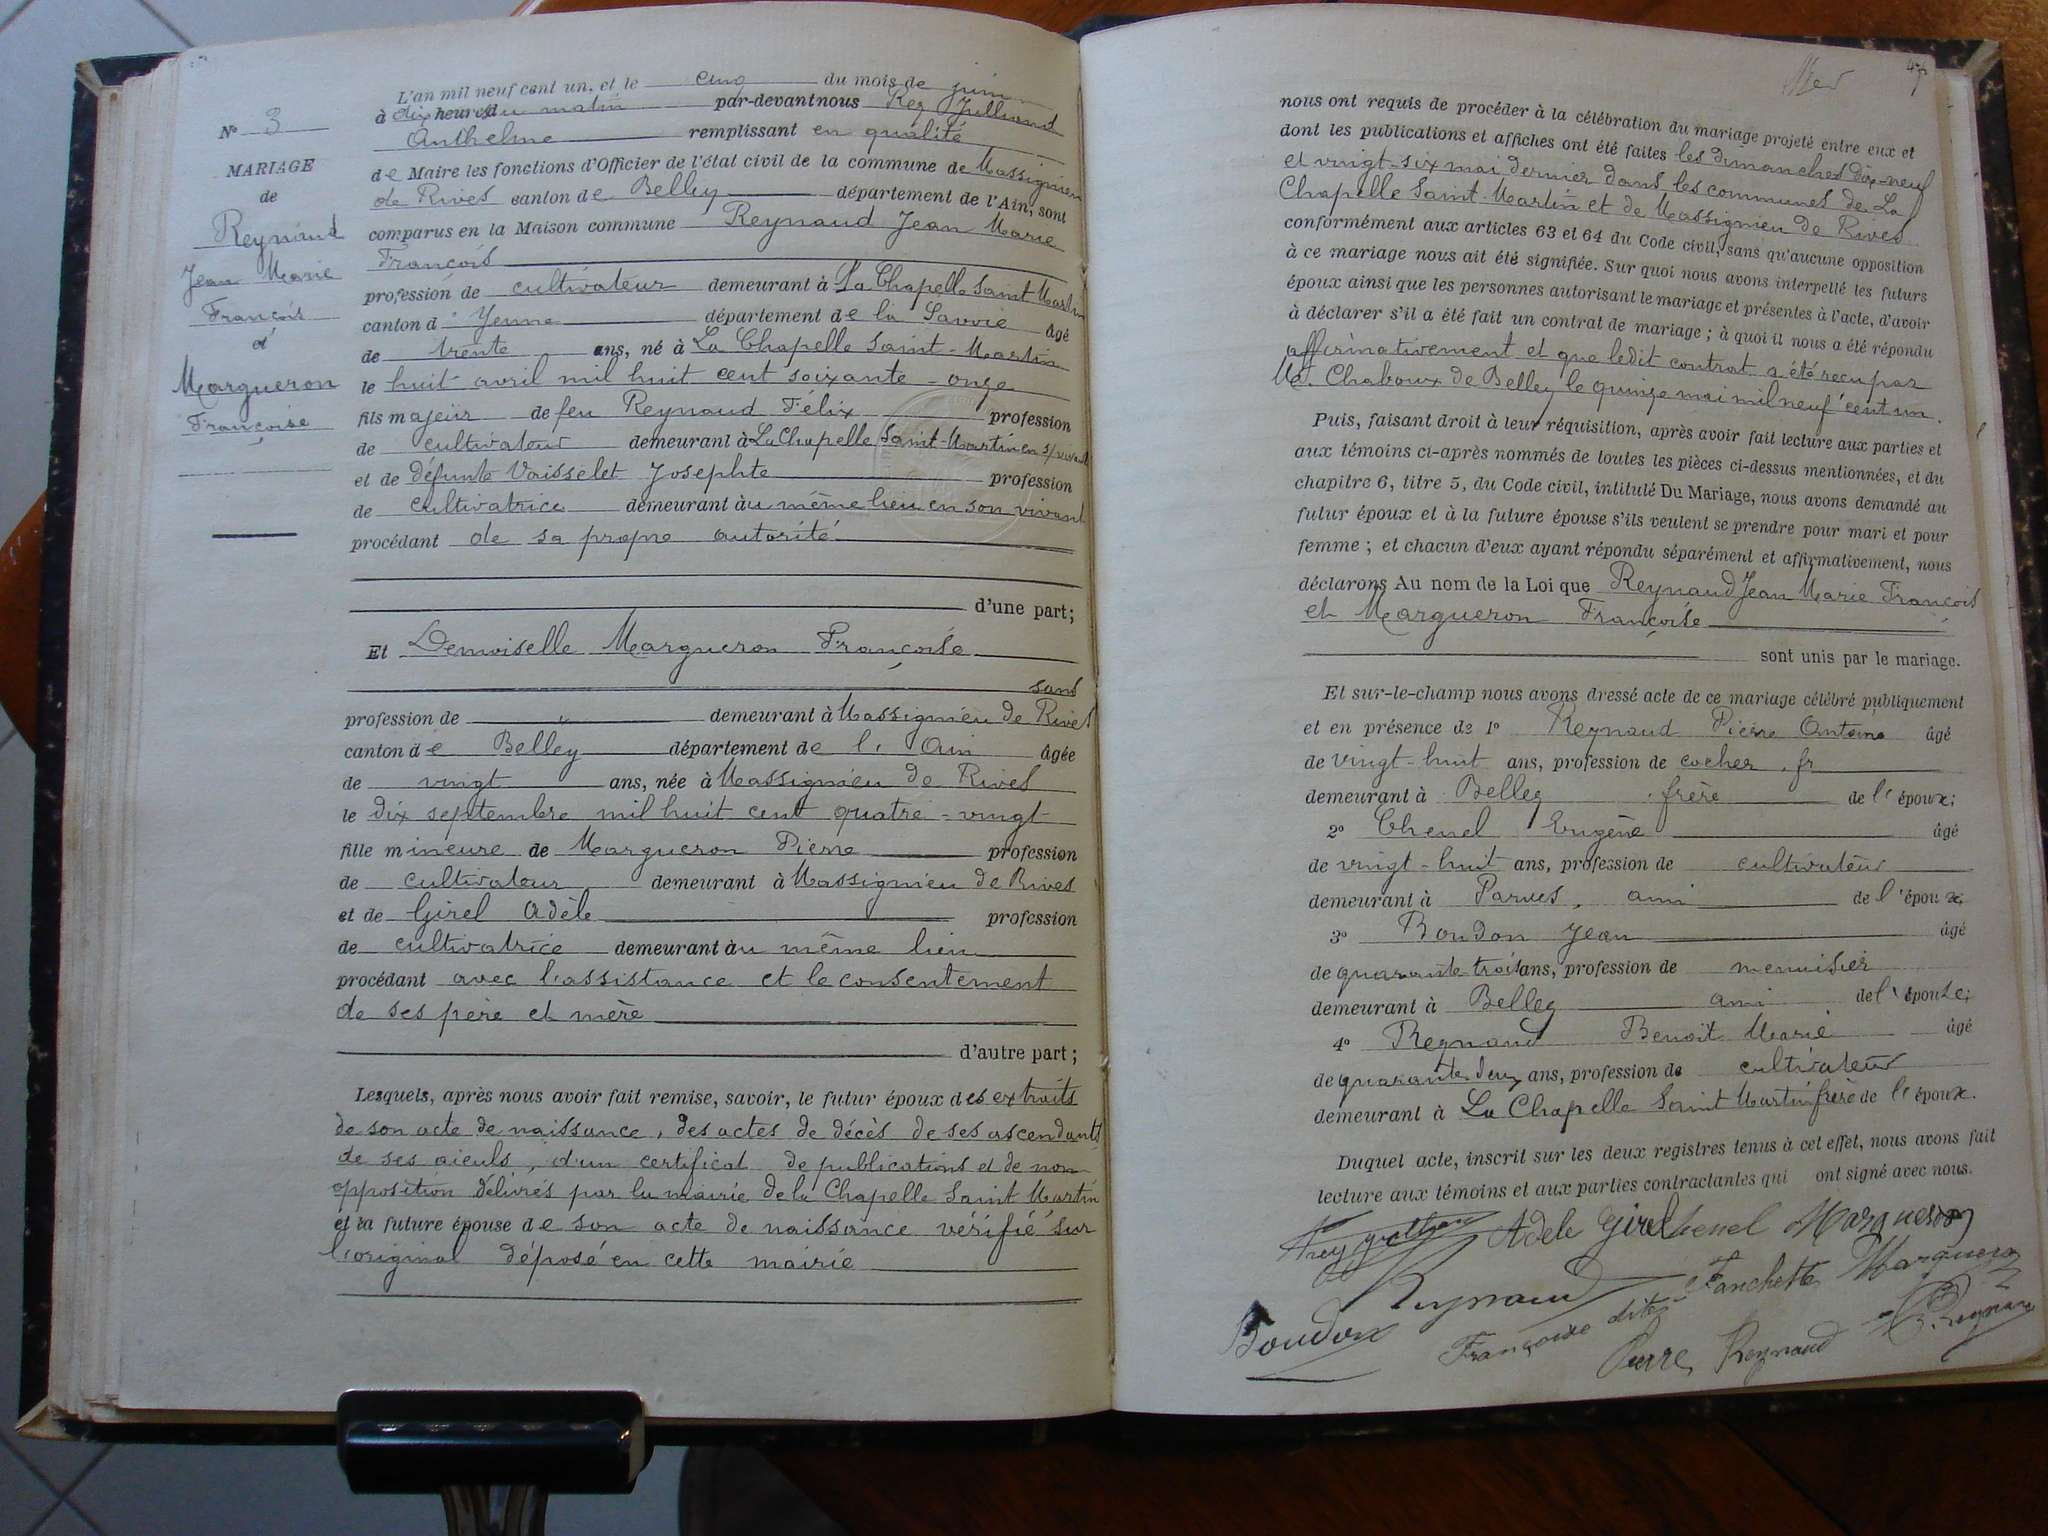 L'an mil neuf cent un, et le cinq du mois de juin
à dix heures du matin par-devant nous Rey Julliand
Anthelme remplissant en qualité
de Maire les fonctions d'Officier de l'état civil de la commune de Massignieu
de Rives canton de Belley département de l'Ain, sont
comparus en la Maison commune Reynaud Jean Marie
François
profession de cultivateur demeurant à La Chapelle Saint Martin
canton d' Yenne département de la Savoie âgé
de trente ans, né à La Chapelle Saint-Martin
le huit avril mil huit cent soixante-onze
fils majeur de feu Reynaud Félix profession
de cultivateur demeurant à La Chapelle Saint-Martin en s/ vivant
et de défunte Vaisselet Josephte profession
de cultivatrice demeurant au même lieu en son vivant
procédant de sa propre autorité
d'une part;
Et Demoiselle Margueron Françoise
sans
profession de demeurant à Massignieu de Rives
canton de Belley département de l'Ain âgée
de vingt ans, née à Massignieu de Rives
le dix septembre mil huit cent quatre-vingt
fille mineure de Margueron Pierre profession
de cultivateur demeurant à Massignieu de Rives
et de Girel Adèle profession
de cultivatrice demeurant au même lieu
procédant avec l'assistance et le consentement
de ses père et mère
d'autre part;
Lesquels, après nous avoir fait remise, savoir, le futur époux des extraits
de son acte de naissance, des actes de décès de ses ascendants
de ses aieuls, d'un certificat de publications et de non
opposition délivrés par la mairie de la Chapelle Saint Martin
et la future épouse de son acte de naissance vérifié sur
l'original déposé en cette mairie
N° 3
MARIAGE
de
Reynaud
Jean Marie
François
et
Margueron
Françoise
47
nous ont requis de procéder à la célébration du mariage projeté entre eux et
dont les publications et affiches ont été faites les dimanches dix-neuf
et vingt-six mai dernier dans les communes de La
Chapelle Saint-Martin et de Massignieu de Rives
conformément aux articles 63 et 64 du Code civil, sans qu'aucune opposition
à ce mariage nous ait été signifiée. Sur quoi nous avons interpellé les futurs
époux ainsi que les personnes autorisant le mariage et présentes à l'acte, d'avoir
à déclarer s'il a été fait un contrat de mariage; à quoi il nous a été répondu
affirmativement et que ledit contrat a été recu par
Me. Chaboux de Belley le quinze mai mil neuf cent un.
Puis, faisant droit à leur réquisition, après avoir fait lecture aux parties et
aux témoins ci-après nommés de toutes les pièces ci-dessus mentionnées, et du
chapitre 6, titre 5, du Code civil, intitulé Du Mariage, nous avons demandé au
futur époux et à la future épouse s'ils veulent se prendre pour mari et pour
femme; et chacun d'eux ayant répondu séparément et affirmativement, nous
déclarons Au nom de la Loi que Reynaud Jean Marie François
et Margueron Françoise
sont unis par le mariage.
Et sur-le-champ nous avons dressé acte de ce mariage célébré publiquement
et en présence de 1° Reynaud Pierre Antoine âgé
de vingt-huit ans, profession de cocher. fr
demeurant à Belley frère de l'époux;
2° Chenel Eugène âgé
de vingt-huit ans, profession de cultivateur
demeurant à Parves, ami de l'époux.
3° Boudon Jean âgé
de quarante trois ans, profession de menuisier
demeurant à Belley ami de l'épouse;
4° Reynaud Benoit Marie âgé
de quarante deux ans, profession de cultivateur
demeurant à La Chapelle Saint Martin frère de l'époux.
Duquel acte, inscrit sur les deux registres tenus à cet effet, nous avons fait
lecture aux témoins et aux parties contractantes qui ont signé avec nous.
Adele Girel Chenel Margueron
Reynaud Fanchette Margueron
Boudon Françoise dite Pierre Reynaud B. Reynaud